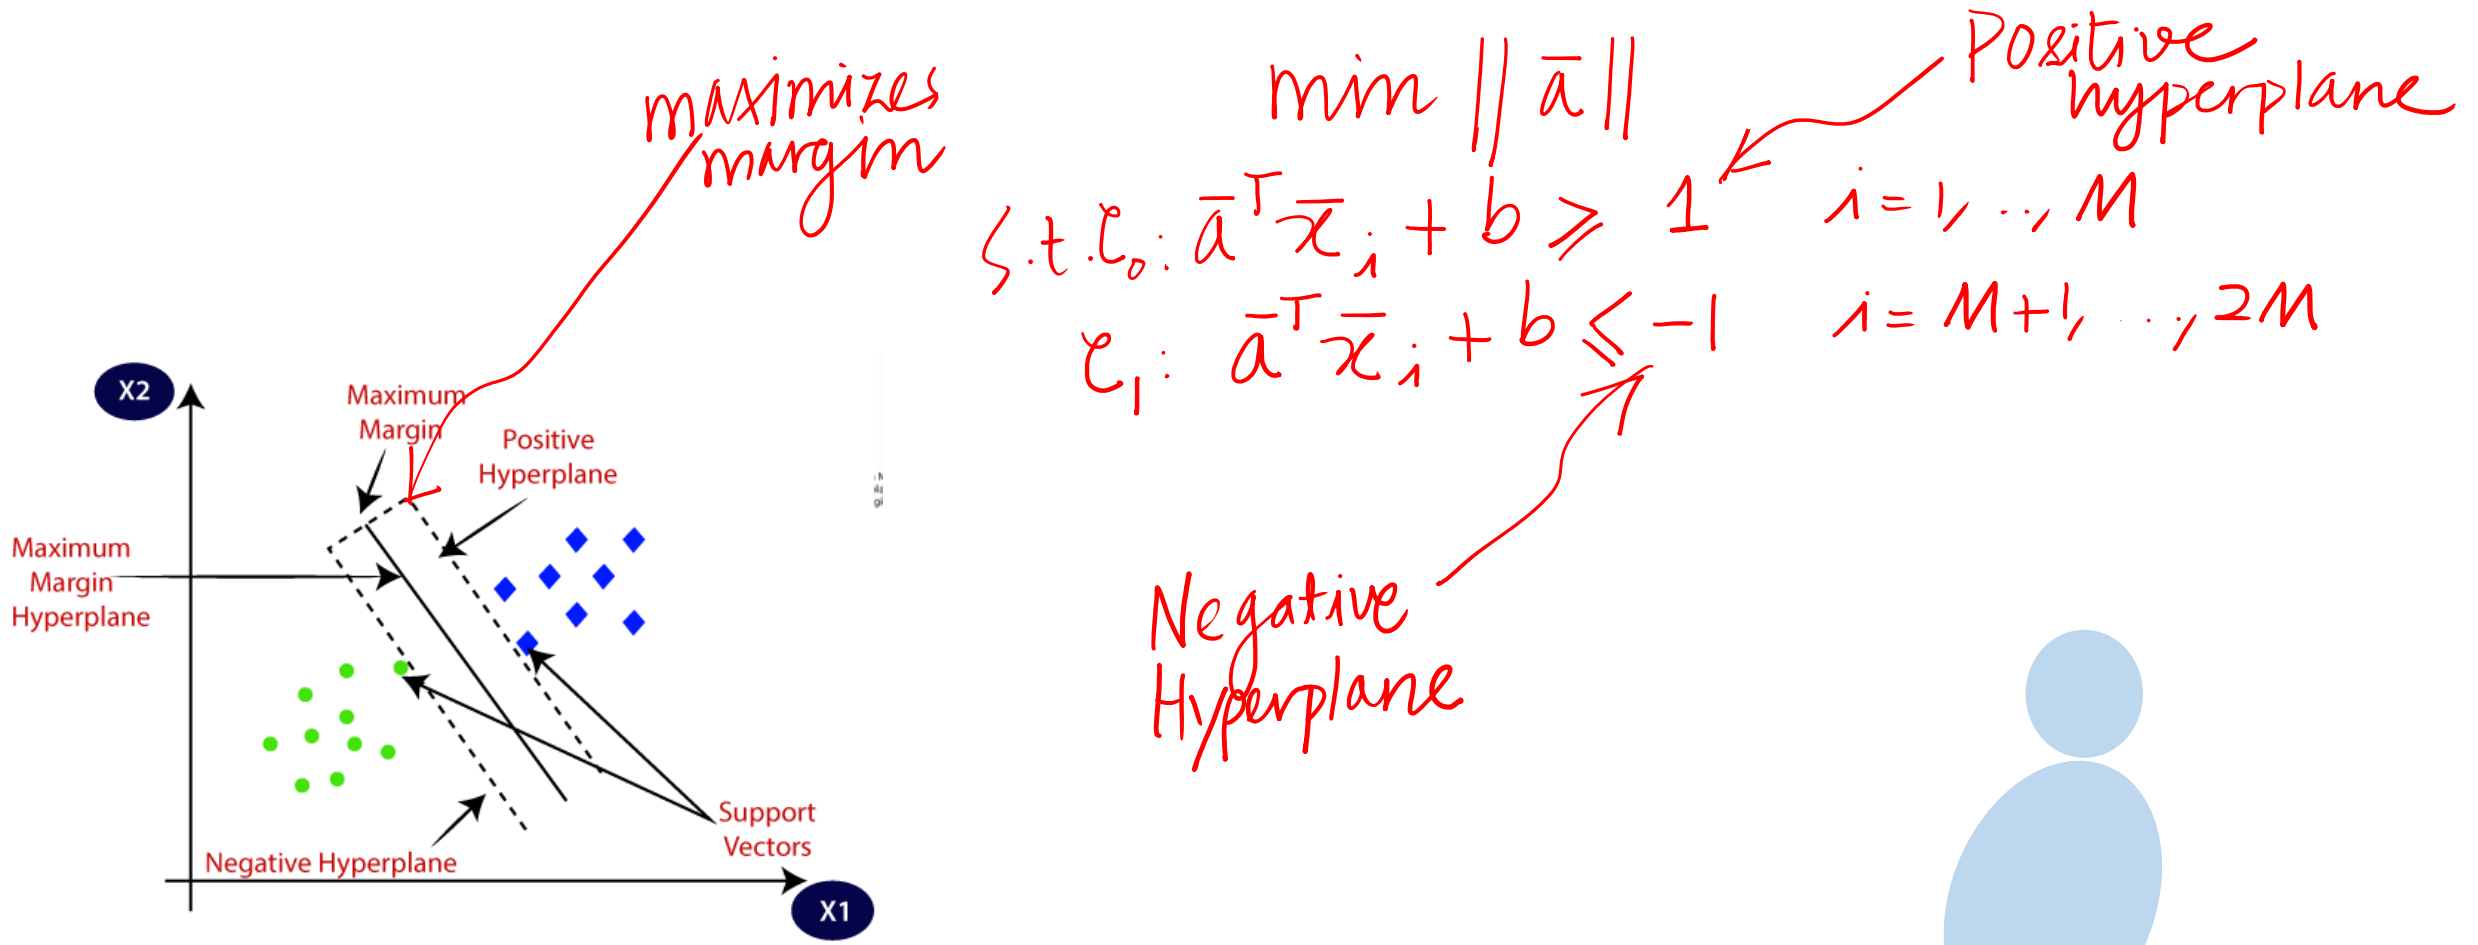 maximizes
margin
min ‖ā‖
Positive
hyperplane
s.t. C₀: āᵀx̄ᵢ + b ≥ 1 i = 1, .., M
C₁: āᵀx̄ᵢ + b ≤ -1 i = M+1, ..., 2M
Negative
Hyperplane
X2
Maximum
Margin
Positive
Hyperplane
Maximum
Margin
Hyperplane
Support
Vectors
Negative Hyperplane
X1